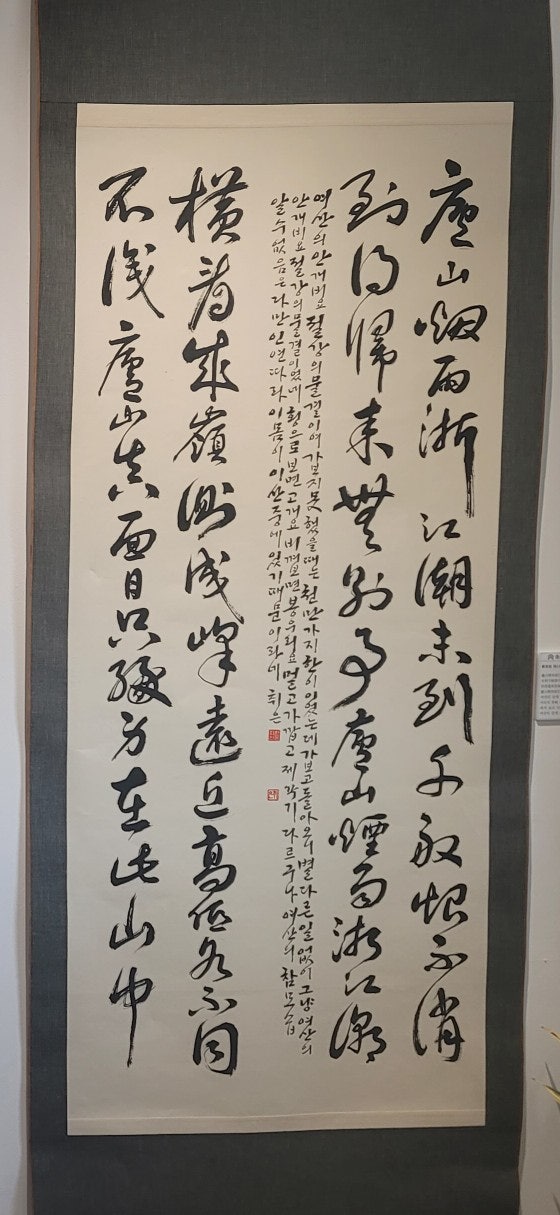 廬山烟雨浙江潮未到千般恨不消
到得歸來無別事廬山煙雨浙江潮
여산의 안개비요 절강의 물결이여 가보지 못했을때는 천만가지 한이 있었는데 가보고 돌아오니 별다른일 없이 그냥 여산의
안개비요 절강의 물결이였네 횡으로 보면 고개요 비껴보면 봉우리요 멀고 가깝고 제각기 다르구나 여산의 참모습
알수없음은 다만 인연따라 이몸이 이산중에 있기때문이라네
橫看成嶺側成峰遠近高低各不同
不識廬山真面目只緣身在此山中